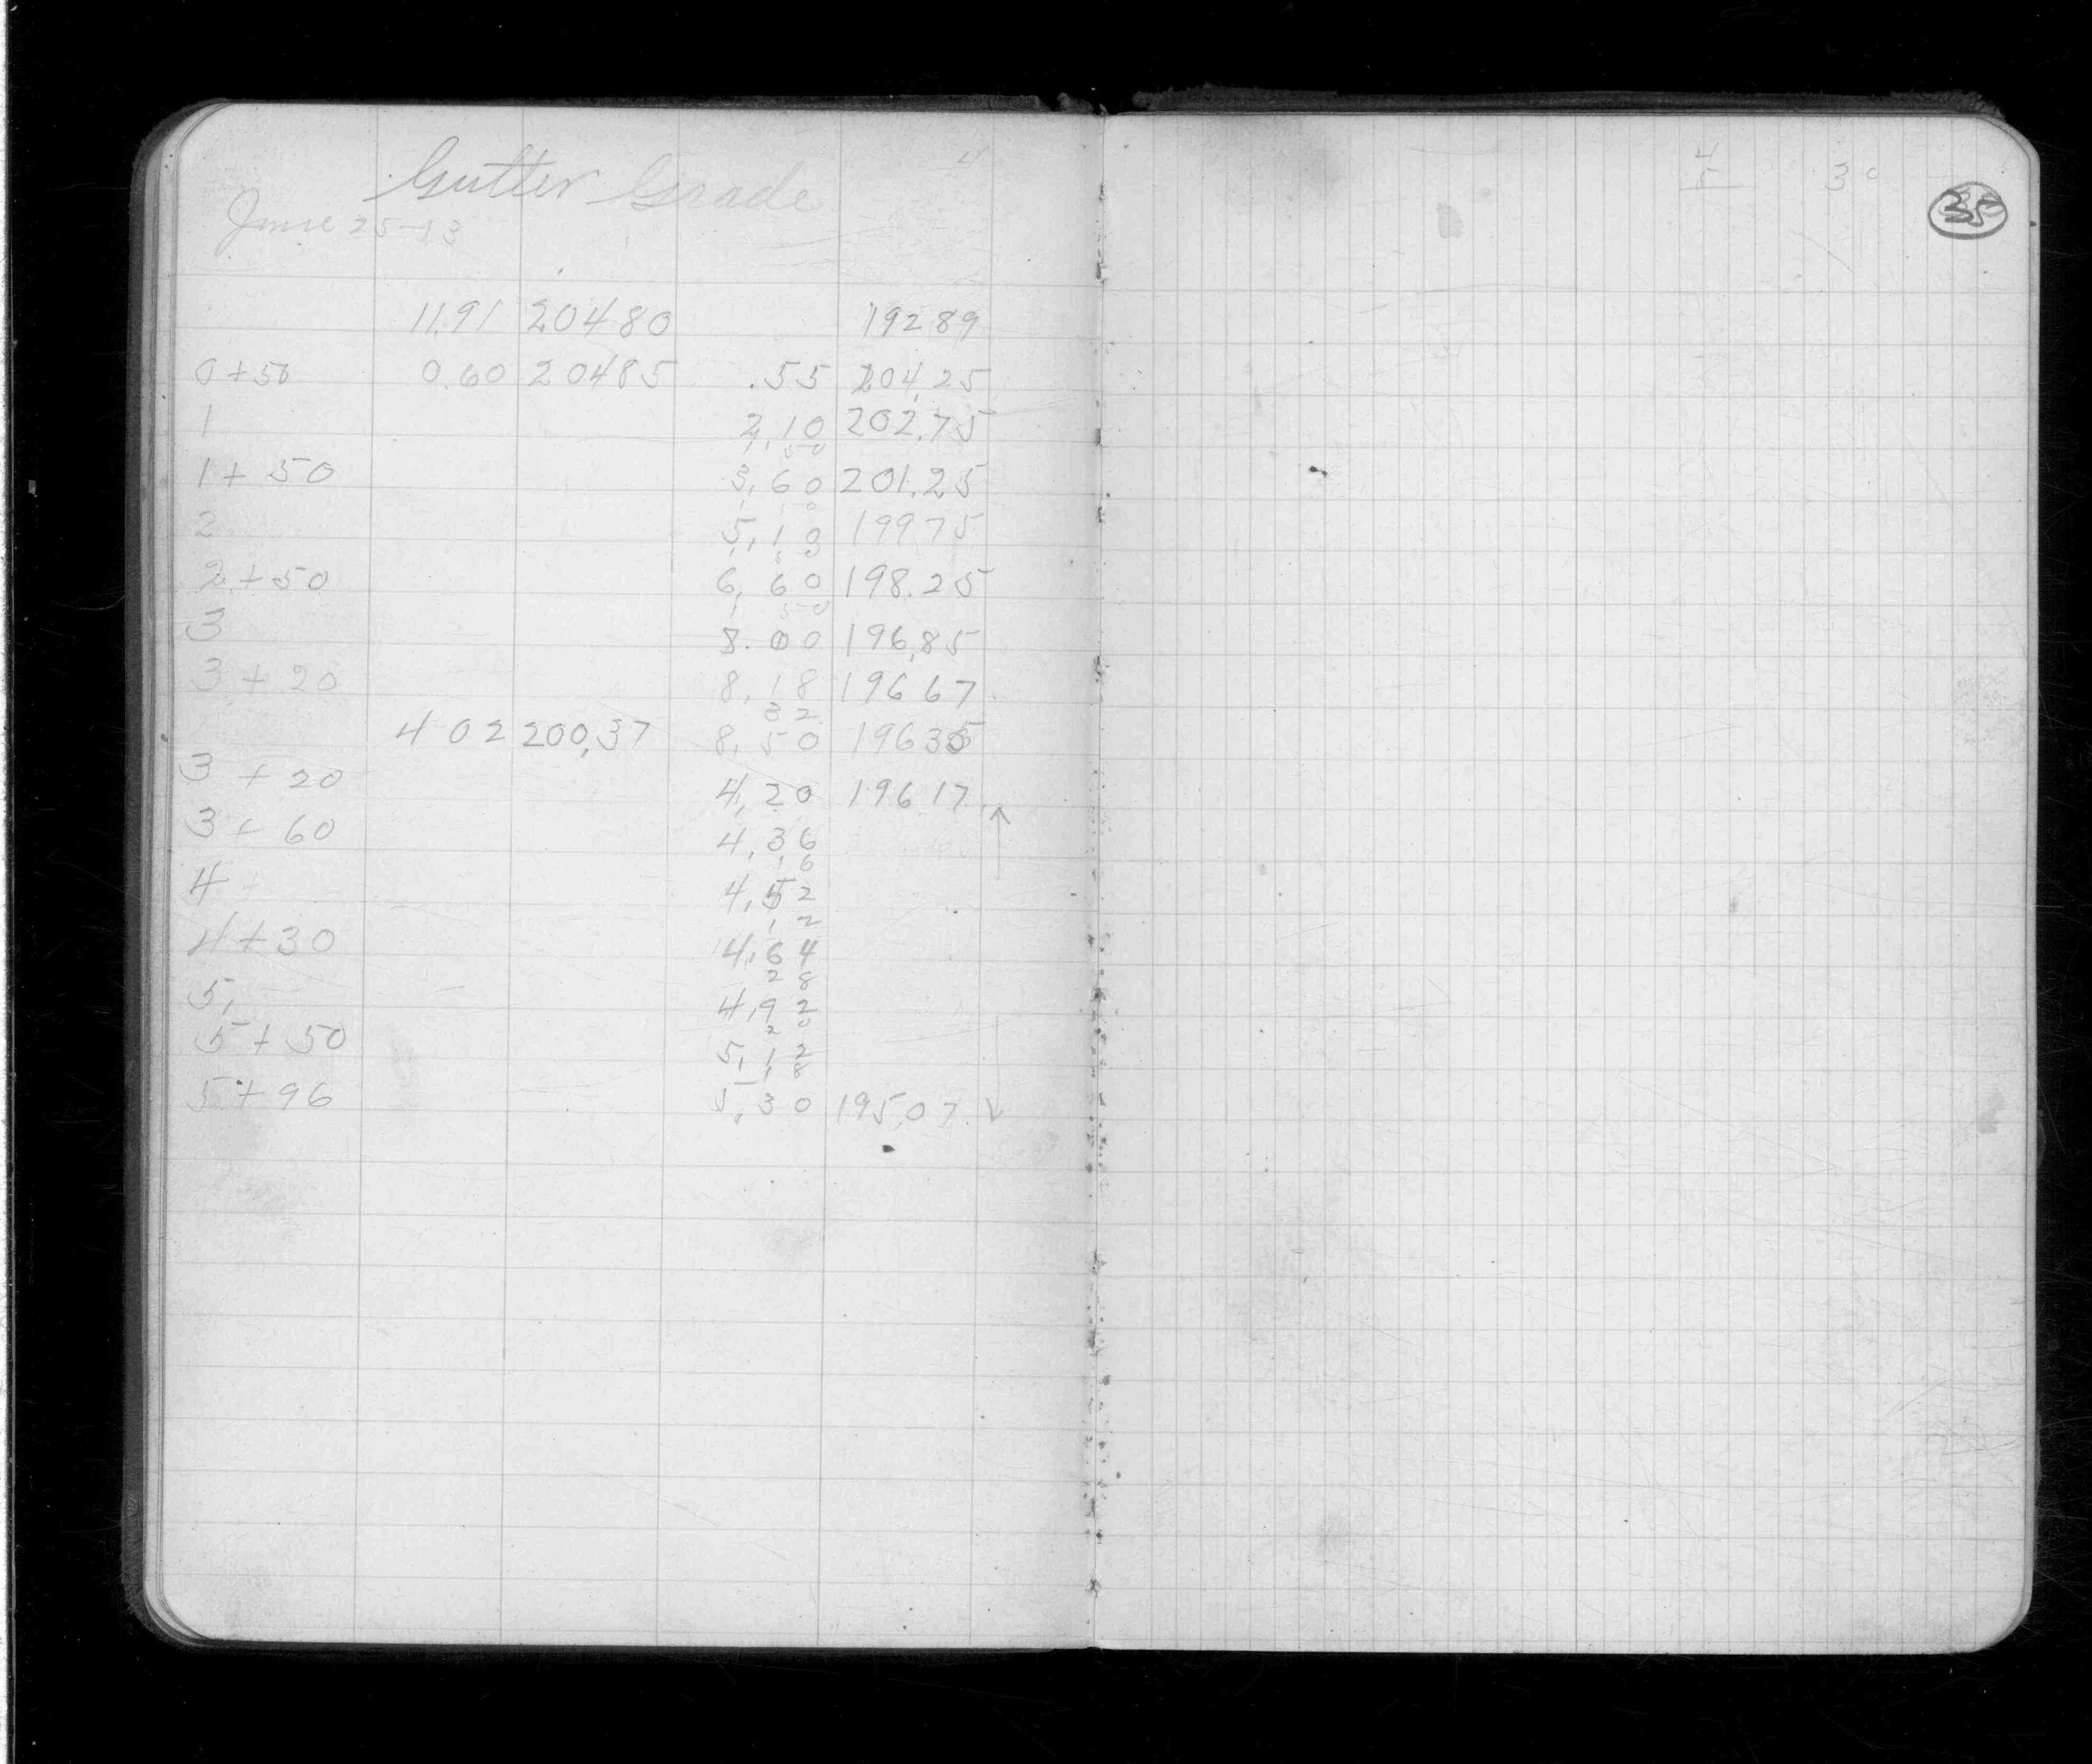 4
Gutter Grade
June 25-13
11.91 20480 19289
0+50 0.60 20485 .55 204,25
1 2,10 202.75
1, 50
1+50 3,60 201.25
1 50
2 5,10 19975
1, 50
2+50 6,60 198.25
1 50
3 8.00 196,85
3+20 8,18 19667
32
402 200,37 8,50 19635
3+20 4,20 19617
3+60 4,36
16
4+ 4,52
12
4+30 4,64
28
5, 4,92
20
5+50 5,12
18
5+96 5,30 195,07
4
5
30
35